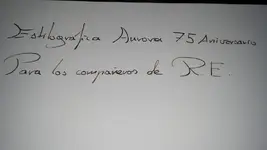 Estilográfica Aurora 75 Aniversario
Para los compañeros de R E.